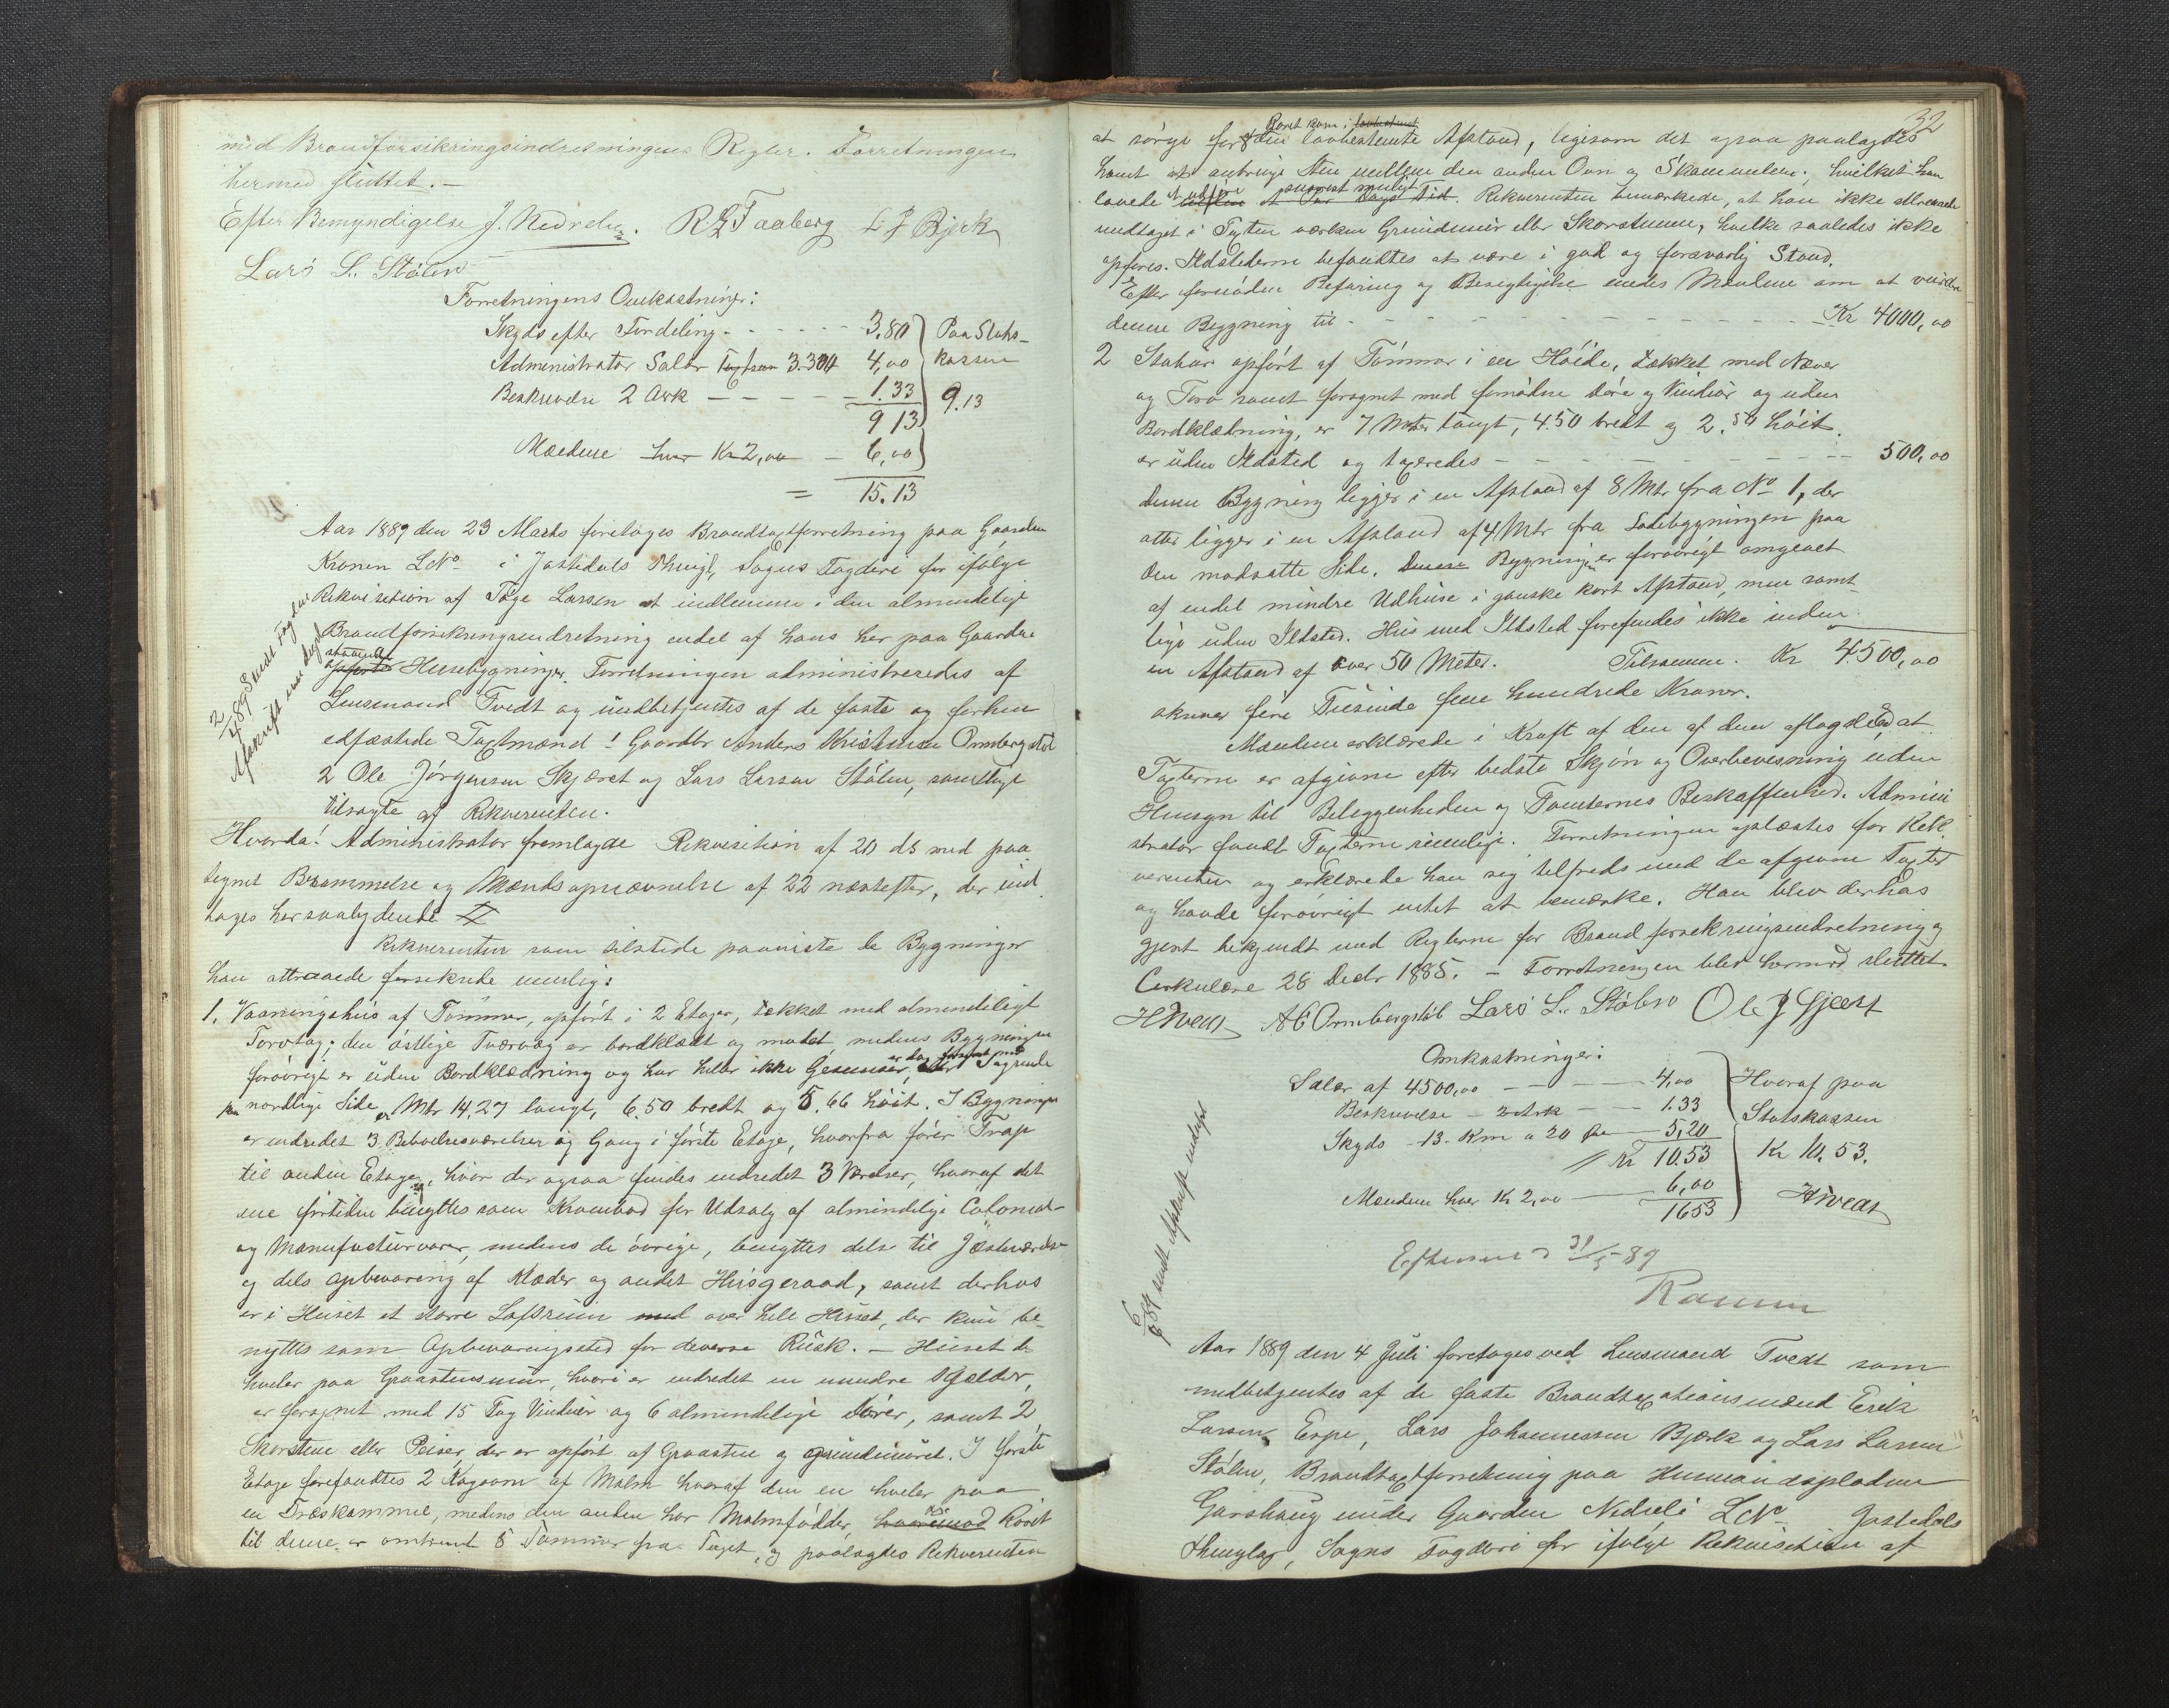 med Brandforsikringsindretningens Regler. Forretningen
hermed sluttet. —
Efter Bemyndigelse J. Nedrelie. R L Faaberg L J Bjerk
Lars L. Stölen
Forretningens Omkostninger:
Skyds efter Fordeling - - - - - - 3,80 Paa Stats-
Administrator Salær Taxtsum 3.300 4,00 kassen
Beskrivelse 2 Ark — — — — 1.33 9.13
9 13
Mændene hver Kr 2,00 — 6,00
= 15.13
Aar 1889 den 23 Marts foretoges Brandtaxtforretning paa Gaarden
Kronen LNo i Jostedals Thingl, Sogns Fogderi for ifølge
Rekvisition af Tøge Larsen at indlemme i den almindelige
Brandforsikringsindretning endel af hans her paa Gaarden
staaende
opførte Husebygninger. Forretningen administreredes af
Lensmand Tvedt og medbetjentes af de faste og forhen
edfæstede Taxtmænd 1 Gaardbr Anders Kristensen Ormbergstøl
2 Ole Jørgensen Skjæret og Lars Larsen Stölen, samtlige
tilsagte af Rekvirenten.
2/4 89 Sendt Fogden
Afskrift
Hvorda! Administrator fremlagde Rekvisition af 20 ds med paa
tegnet Berammelse og Mændsopnævnelse af 22 næstefter, der ind
tages her saalydende #
Rekvirenten som tilstede paaviste de Bygninger
han attraaede forsikrede nemlig:
1. Vaaningshus af Tømmer, opført i 2 Etager, tækket med almindeligt
Torvtag; den østlige Tværvæg er bordklædt og malet, medens Bygningen
forøvrigt er uden Bordklædning og har heller ikke Gesimser, er dog forsynet med Tagrende
paa nordlige Side, er Mtr 14.27 langt, 6.50 bredt og 5.66 høit. I Bygningen
er indredet 3 Beboelsesværelser og Gang i første Etage, hvorfra fører Trap
til anden Etage, hvor der ogsaa findes indredet 3 Værelser, hvoraf det
ene førtiden benyttes som Krambod for Udsalg af almindelige Colonial-
og Manufacturvarer, medens de øvrige, benyttes dels til Gjesteværelse
og dels Opbevaring af Klæder og andet Husgeraad, samt derhos
er i Huset et større Loftsrum med over hele Huset, der kun be-
nyttes som Opbevaringssted for diverse Rusk. — Huset be
hviler paa Graastensmur, hvori er indredet en mindre Kjælder,
er forsynet med 15 Fag Vinduer og 6 almindelige Dører, samt 2
Skorstene eller Peiser, der er opført af Graasten og grundmuret. I første
Etage forefandtes 2 Kogeovn af Malm hvoraf den en hviler paa
en Træskammel, medens den anden har Malmfødder, hvorimod Røret
til denne er omtrent 8 Tommer fra Taget, og paalagdes Rekvirenten
32
Røret kom i
at sørge for den lovbestemte Afstand, ligesom det ogsaa paalagdes
ham at anbringe Sten mellem den anden Ovn og Skammelen; hvilket han
at udføre snarest muligt
lovede et Par Dags Tid. Rekvirenten bemærkede, at han ikke attraaede
medtaget i Taxten værken Grundmur eller Skorstenene, hvilke saaledes ikke
opføres. Ildstederne befandtes at være i god og forsvarlig Stand.
Efter fornøden Befaring og Besigtigelse enedes Mændene om at vurdere
denne Bygning til - - - - - - Kr 4000,00
2 Stabur opført af Tømmer i en Høide, tækket med Næver
og Torv samt forsynet med fornødne Døre og Vinduer og uden
Bordklædning, er 7 Meter langt, 4.50 bredt og 2.50 høit.
er uden Ildsted og taxeredes - - - - - - 500,00
Denne Bygning ligger i en Afstand af 8 Mtr fra No 1, der
atter ligger i en Afstand af 4 Mtr fra Ladebygningen paa
den modsatte Side. Denne Bygningen er forøvrigt omgivet
af endel mindre Udhuse i ganske kort Afstand, men samt
lige uden Ildsted. Hus med Ildsted forefindes ikke inden
en Afstand af over 50 Meter. Tilsammen. Kr 4500,00
skriver fire Tusinde fem hundrede Kroner.
Mændene erklærede i Kraft af den af dem aflagde Ed at
Taxterne er afgivne efter bedste Skjøn og Overbevisning uden
Hensyn til Beliggenheden og Tomternes Beskaffenhed. Admini
strator fandt Taxterne rimelige. Forretningen oplæstes for Rek.
virenten og erklærede han sig tilfreds med de afgivne Taxter
og havde forøvrigt intet at bemærke. Han blev derhos
gjort bekjendt med Reglerne for Brandforsikringsindretning og
Cirkulære 28 Decbr 1885. — Forretningen blev hermed sluttet.
HTvedt A C Ormbergstøl Lars L. Stölen Ole J Sjæret
Omkostninger:
Salær af 4500,00 — — — — 4,00 Hvoraf paa
Beskrivelse — 2 Ark — — 1.33 Statskassen
Skyds 13. Km a 20 Øre — 5,20 Kr 10.53.
Kr 10.53
Mændene hver Kr 2,00 — 6,00 HTvedt
1653
6/4 89 sendt Afskrift
Efterseet 31/5 89
Ramm
Aar 1889 den 4 Juli foretoges ved Lensmand Tvedt som
medbetjentes af de faste Brandtaxationsmænd Erik
Larsen Espe, Lars Johannessen Bjerk og Lars Larsen
Stölen, Brandtaxtforretning paa Husmandspladsen
Garshaug under Gaarden Nedreli LNo Jostedals
Thinglag, Sogns Fogderi for ifølge Rekvisition af